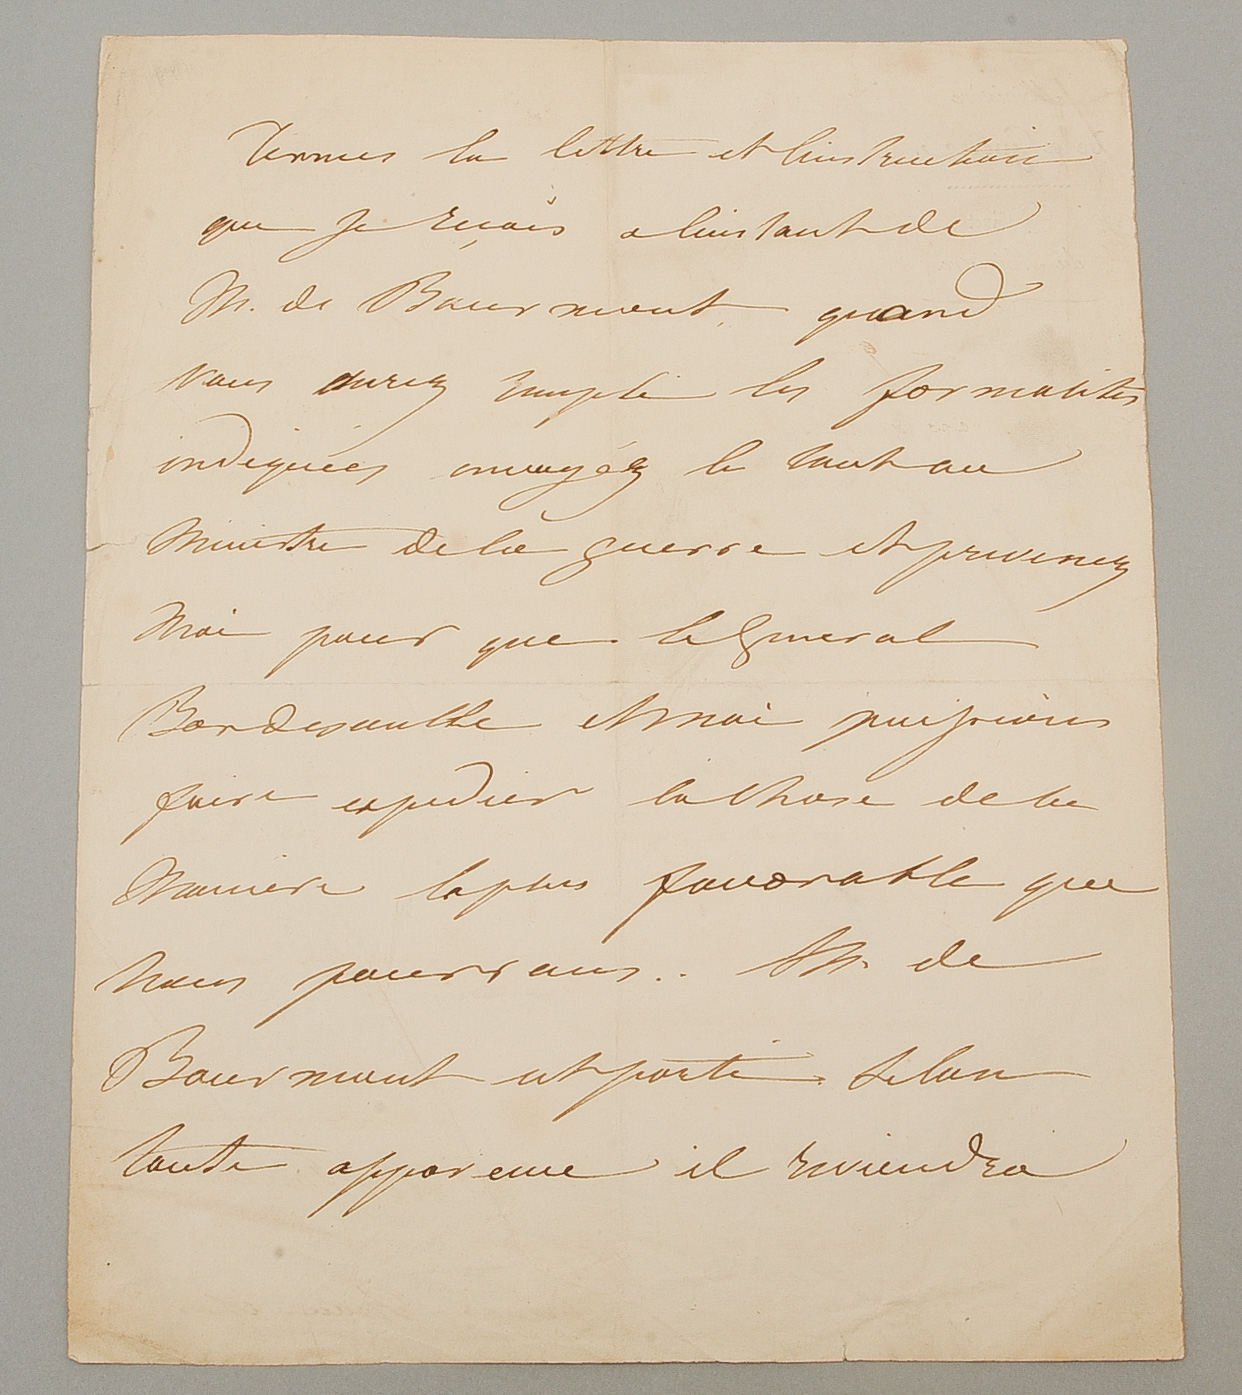 la lettre et l'instruction
que je reçois a l'instant de
M. de Bourmont. quand
vous aurez rempli les formalités
indiquées envoyéz le tout au
Ministre de la guerre et prevenez
Moi pour que le General
Bordesoulle et moi puissions
faire expedier la chose de la
Maniere la plus favorable que
nous pourrons.. M. de
Bourmont est parti. selon
toute apparence il reviendra